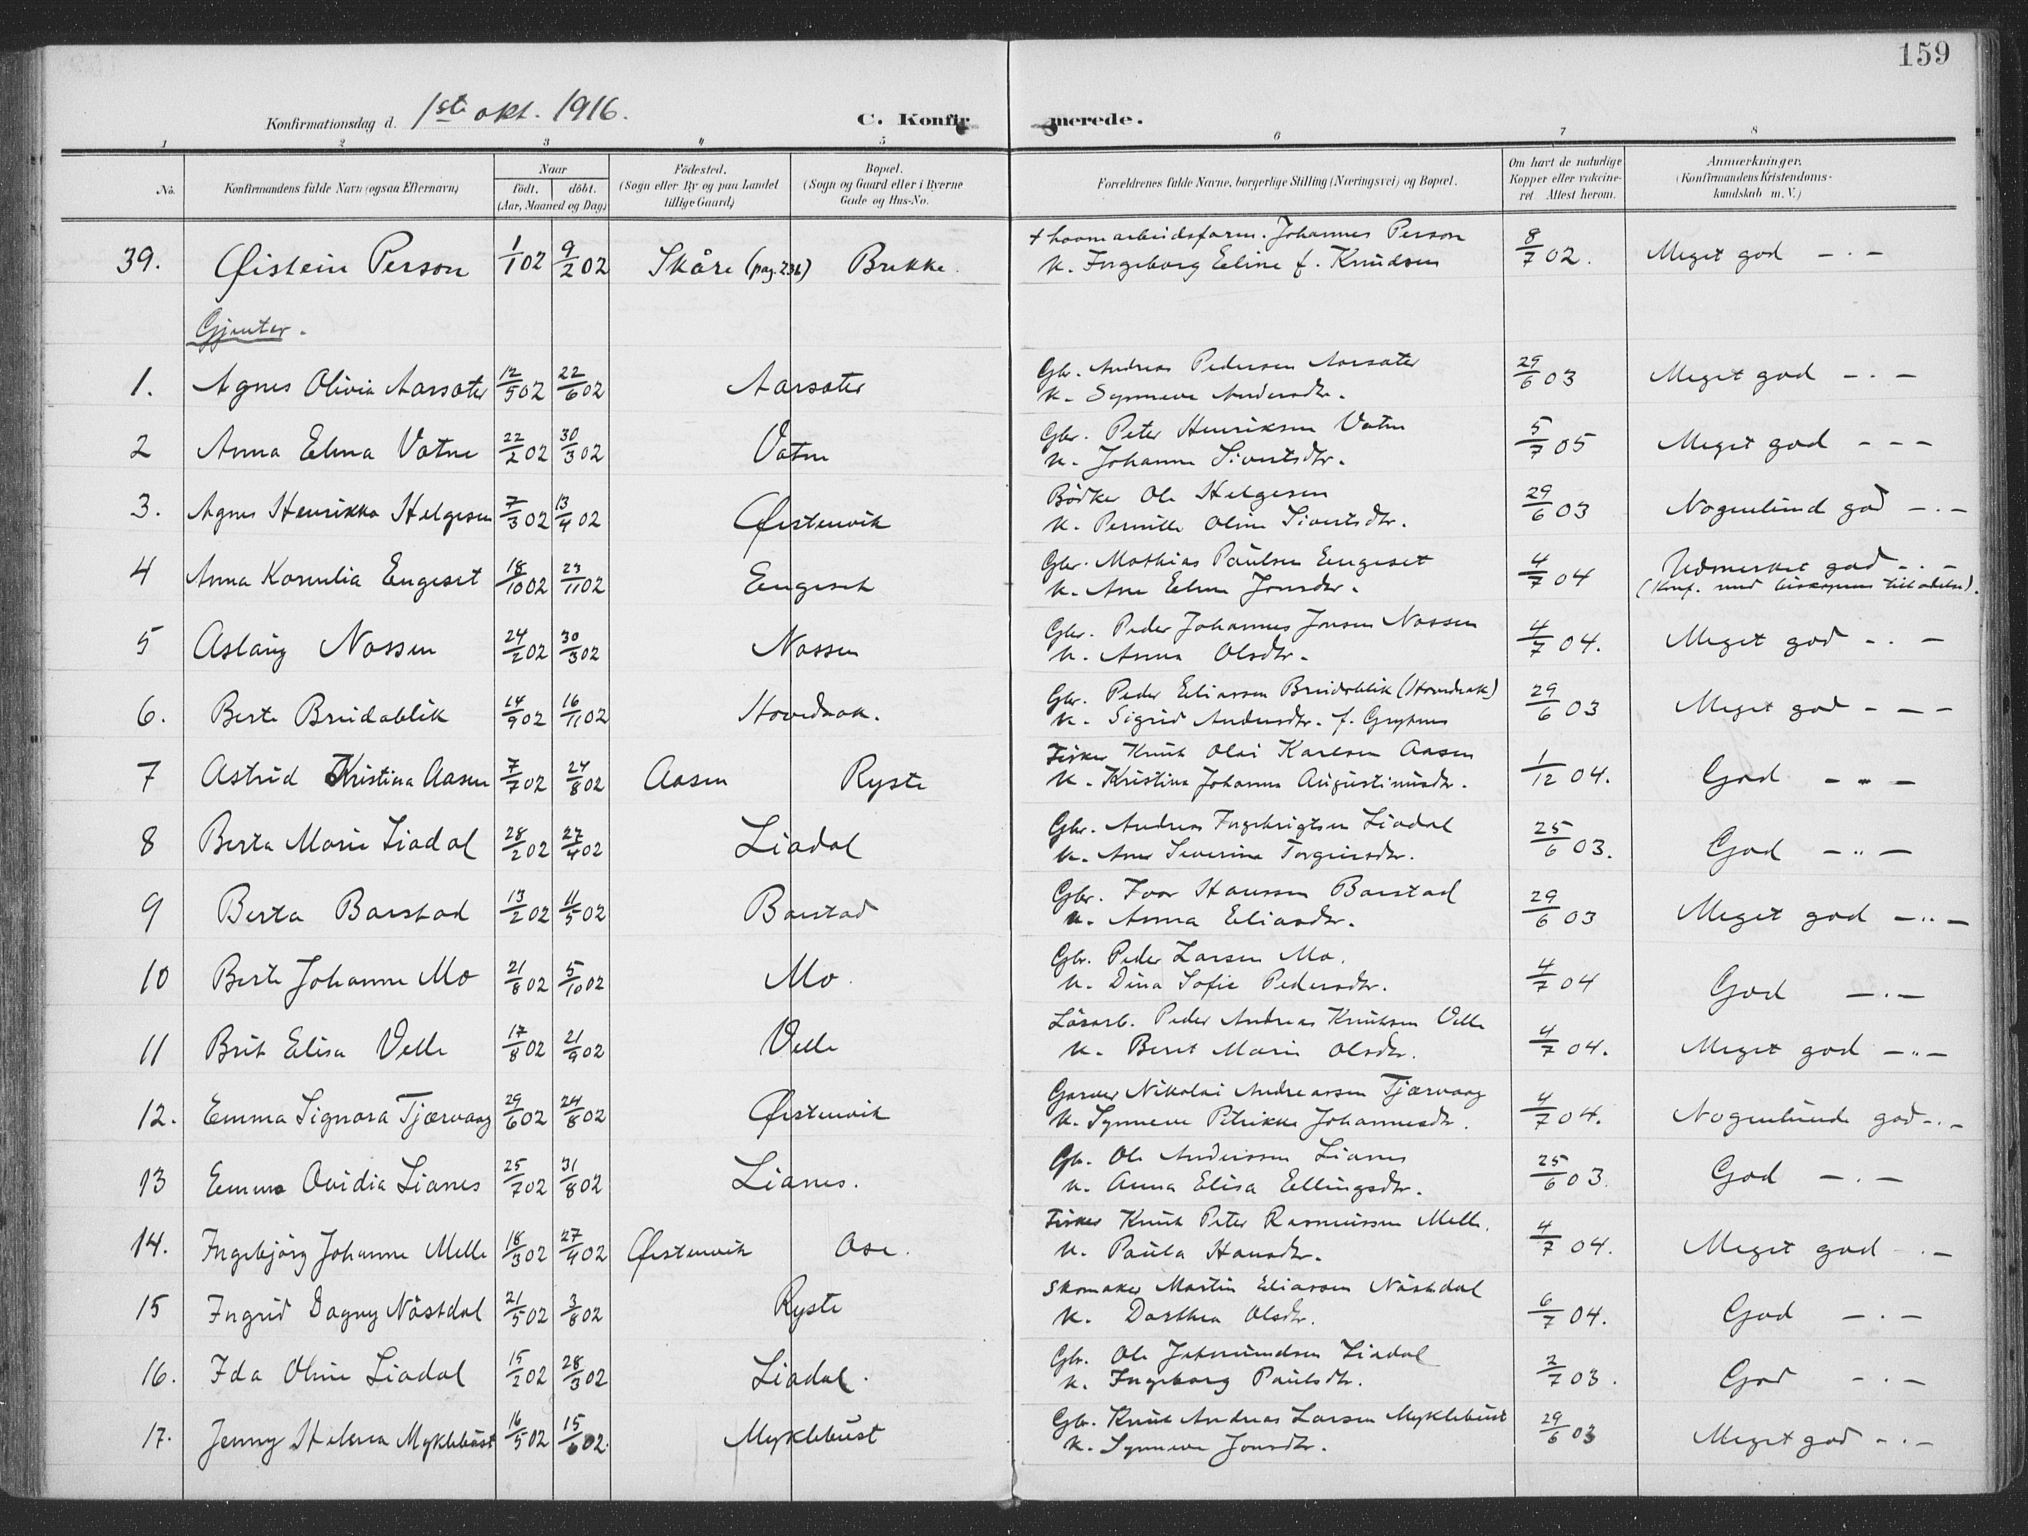 159
Konfirmationsdag d. 1ste okt. 1916.
C. Konfir merede.
1 2 3 4 5 6 7 8
No. Konfirmandens fulde Navn (ogsaa Efternavn)
Naar
født. døbt.
(Aar, Maaned og Dag)
Fødested.
(Sogn eller By og paa Landet
tillige Gaard)
Bopæl.
(Sogn og Gaard eller i Byerne
Gade og Hus-No.
Forældrenes fulde Navne, borgerlige Stilling (Næringsvei) og Bopæl.
Om havt de naturlige
Kopper eller vakcine-
ret Attest herom.
Anmærkninger.
(Konfirmandens Kristendoms-
kundskab m. V.)
39. Øistein Person 1/1 02 9/2 02 Skåre (pag. 236) Brekke. + hovmarbeidsform. Johannes Person 8/7 02. Meget god — . —
K. Ingeborg Eline f. Knudsen
Gjenter.
1. Agnes Olivia Aarsæter 12/5 02 22/6 02 Aarsæter Gbr. Andreas Pedersen Aarsæter 29/6 03 Meget god — . —
K. Synneve Andersdtr.
2 Anna Elina Vatne 22/2 02 30/3 02 Vatne Gbr. Peter Henriksen Vatne 5/7 05 Meget god — — —
K. Johanne Sivertsdtr.
3. Agnes Henrikka Helgesen 7/3 02 13/4 02 Ørstenvik Bødker Ole Helgesen 29/6 03 Nogenlund god — . —
K. Pernille Oline Sivertsdtr.
4 Anna Kornelia Engeset 18/10 02 23/11 02 Engeset Gbr. Mathias Paulsen Engeset 4/7 04 Udmerket god — . —
K. Ane Eline Jonsdtr. (Konf. med biskopens tilladelse).
5 Aslaug Nossen 24/2 02 30/3 02 Nossen Gbr. Peder Johannes Jonsen Nossen 4/7 04. Meget god — . —
K. Anna Olsdtr.
6. Berte Breidablik 14/9 02 16/11 02 Hovdeak. Gbr. Peder Eliassen Breidablik (Hovdeak) 29/6 03 Meget god — — —
K. Sigrid Andersdtr. f. Grytnes
7 Astrid Kristina Aasen 7/7 02 24/8 02 Aasen Ryste Fisker Knut Olai Karlsen Aasen 1/12 04. God — " —
K. Kristina Johanna Augustinusdtr.
8 Berta Marie Liadal 28/2 02 27/4 02 Liadal Gbr. Andreas Ingebrigtsen Liadal 25/6 03. God — " —
K. Ane Severine Torgeirsdtr.
9 Berta Barstad 13/2 02 11/5 02 Barstad Gbr. Ivar Hanssen Barstad 29/6 03 Meget god — " —
K. Anna Eliasdtr.
10 Berte Johanne Mo 21/8 02 5/10 02 Mo. Gbr. Peder Larsen Mo. 4/7 04 God — . —
K. Dina Sofie Pedersdtr.
11 Brit Elisa Velle 17/8 02 21/9 02 Velle Løsarb. Peder Andreas Knutsen Velle 4/7 04. Meget god — " —
K. Beret Marie Olsdtr.
12. Emma Signora Tjærvaag 29/6 02 24/8 02 Ørstenvik Garver Nikolai Andreassen Tjærvaag 4/7 04. Nogenlunde god — . —
K. Synneve Petrikke Johannesdtr.
13 Emma Ovidia Lianes 25/7 02 31/8 02 Lianes. Gbr. Ole Anderssen Lianes 25/6 03. God — . —
K. Anna Elisa Ellingsdtr.
14. Ingebjørg Johanne Melle 18/3 02 27/4 02 Ørstenvik Ose. Fisker Knut Peter Rasmussen Melle. 4/7 04. Meget god — . —
K. Paula Hansdtr.
15 Ingrid Dagny Nåstdal 21/5 02 3/8 02 Ryste Skomaker Martin Eliassen Nåstdal 6/7 04. God — . —
K. Dorthea Olsdtr.
16. Ida Oline Liadal 15/2 02 28/3 02 Liadal. Gbr. Ole Jetmundsen Liadal 2/7 03. God — . —
K. Ingeborg Paulsdtr.
17. Jenny Helena Myklebust 16/5 02 15/6 02. Myklebust Gbr. Knut Andreas Larsen Myklebust 29/6 03 Meget god — . —
K. Synneve Jonsdtr.